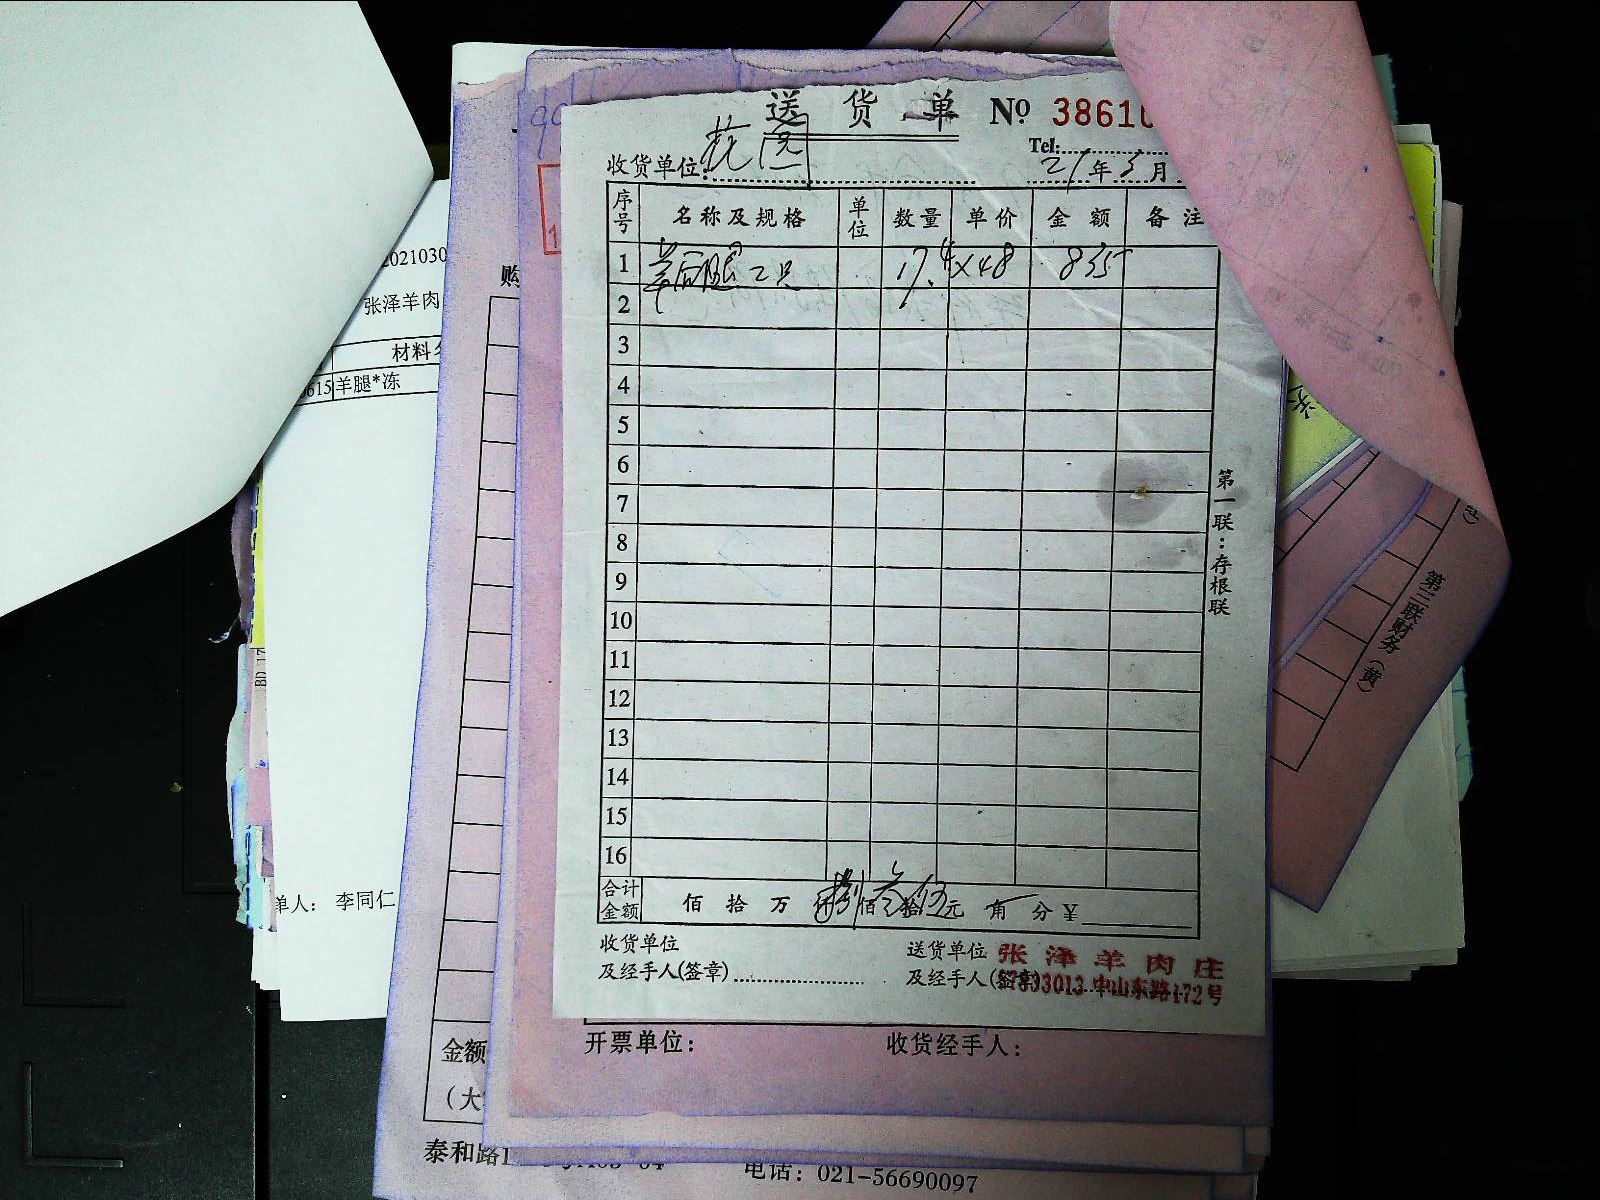 送 货 单 Nº 38616
Tel:
收货单位: 花园 21年3月
序号 名称及规格 单位 数量 单价 金额 备注
1 羊后腿2只 17.4×48 835
2
3
4
5
6
7
8
9
10
11
12
13
14
15
16
合计金额 佰 拾 万 仟捌佰叁拾伍元 角 分 ¥
收货单位 送货单位 张泽羊肉庄
及经手人(签章) 及经手人(签章) 中山东路172号
第一联:存根联
开票单位: 收货经手人:
202103
张泽羊肉
材料
615 羊腿*冻
单人: 李同仁
购
金额
(大
泰和路
电话: 021-56690097
第三联财务(黄)